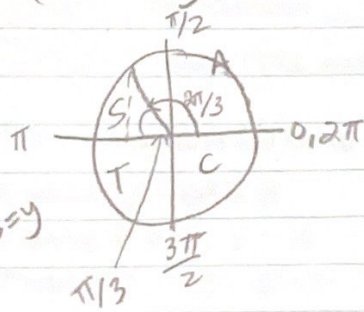 π/2
A
S
2π/3
π
0,2π
T
C
=y
3π/2
π/3